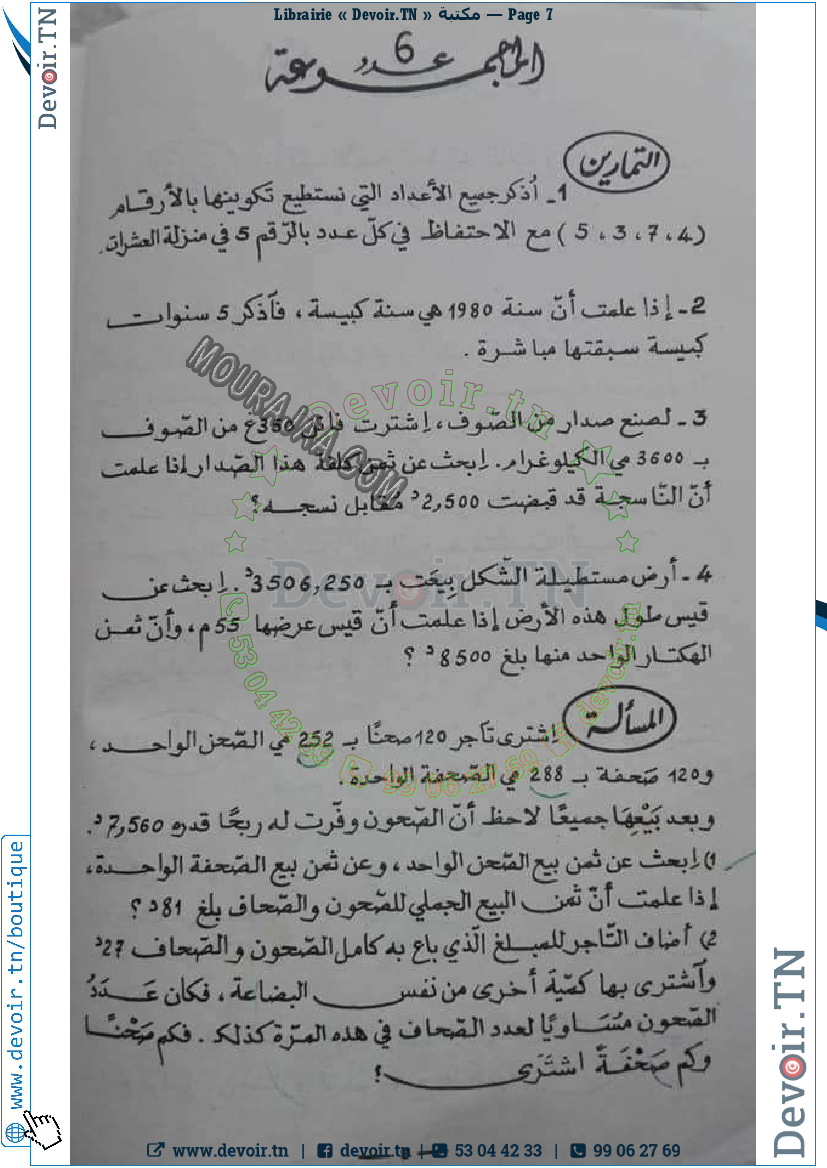 Librairie « Devoir.TN » مكتبة — Page 7
Devoir.TN
المجموعة عدد 6
التمارين
1- أُذكر جميع الأعداد التي نستطيع تكوينها بالأرقام
(4، 7، 3، 5) مع الاحتفاظ في كلّ عدد بالرّقم 5 في منزلة العشرات.
2- إذا علمت أنّ سنة 1980 هي سنة كبيسة، فآذكر 5 سنوات
كبيسة سبقتها مباشرة.
3- لصنع صدار من الصّوف، اِشترت فاتن 350غ من الصّوف
بـ 3600 مي الكيلوغرام. اِبحث عن ثمن كلفة هذا الصّدار إذا علمت
أنّ النّاسجة قد قبضت 2,500د مُقابل نسجه؟
4- أرض مستطيلة الشّكل بِيعَت بـ 3506,250د. اِبحث عن
قيس طول هذه الأرض إذا علمت أنّ قيس عرضها 55م، وأنّ ثمن
الهكتار الواحد منها بلغ 8500د؟
المسألة
اِشترى تاجر 120 صحنًا بـ 252 مي الصّحن الواحد،
و120 صَحفة بـ 288 مي الصّحفة الواحدة.
وبعد بَيْعِهَا جميعًا لاحظ أنّ الصّحون وفّرت له ربحًا قدره 7,560د.
1) اِبحث عن ثمن بيع الصّحن الواحد، وعن ثمن بيع الصّحفة الواحدة،
إذا علمت أنّ ثمن البيع الجملي للصّحون والصّحاف بلغ 81د؟
2) أضاف التّاجر للمبلغ الّذي باع به كامل الصّحون والصّحاف 27د
وآشترى بها كمّيّة أخرى من نفس البضاعة، فكان عَدَدُ
الصّحون مُسَاويًا لعدد الصّحاف في هذه المرّة كذلك. فكم صَحْنًا
وكم صَحْفَةً اشتَرَى؟
MOURAJAA.COM
Devoir.tn
Devoir.TN
53 04 42 33
99 06 27 69
www.devoir.tn/boutique
Devoir.TN
www.devoir.tn | devoir.tn | 53 04 42 33 | 99 06 27 69